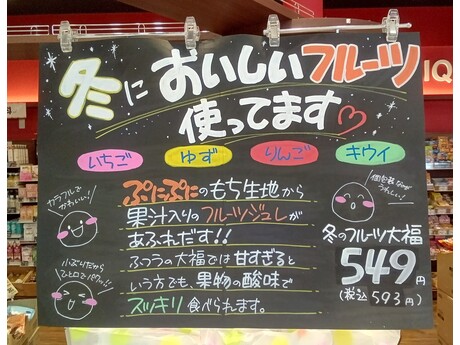 冬においしいフルーツ
使ってます♡
いちご ゆず りんご キウイ
ぷにぷにのもち生地から
果汁入りのフルーツジュレが
あふれだす!!
ふつうの大福では甘すぎると
いう方でも、果物の酸味で
スッキリ食べられます。
カラフルで
かわいい!
小ぶりだから
ひとロでパクッ!!
個包装
うれしい!
冬のフルーツ大福
549円
(税込593円)
IQ